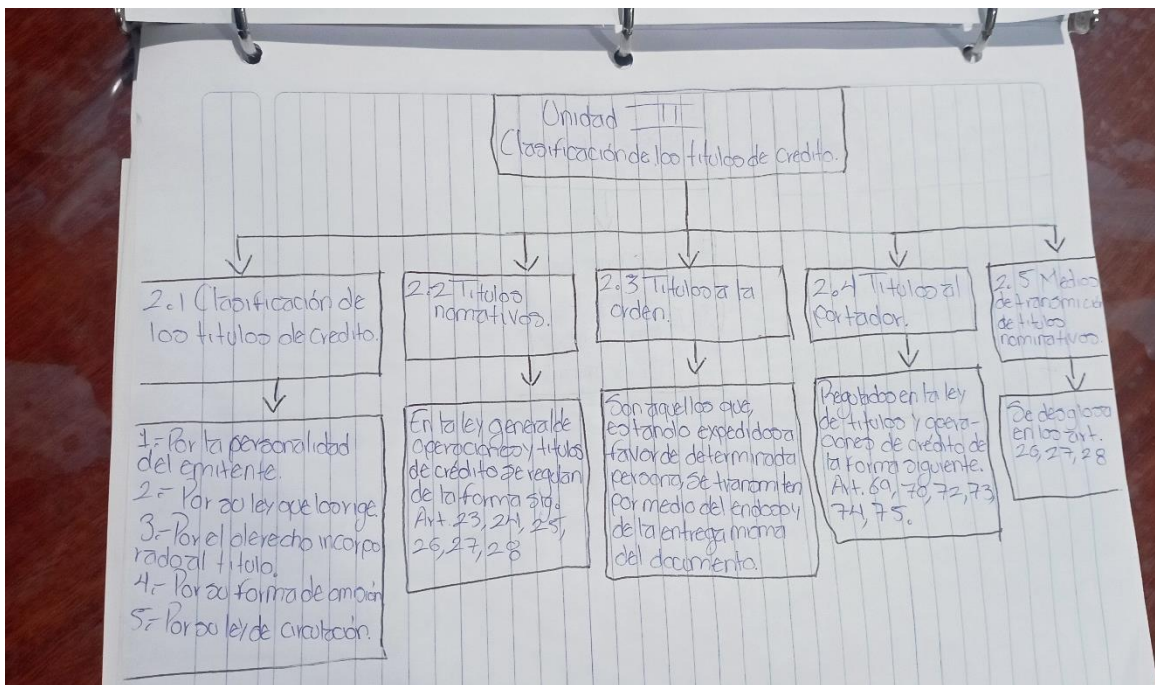 Unidad III
Clasificación de los titulos de credito.
2.1 Clasificación de
los titulos de credito.
1.- Por la personalidad
del emitente.
2.- Por su ley que los rige
3.- Por el derecho incorpo
rado al titulo.
4.- Por su forma de
5.- Por su ley de circulación.
2.2 Titulos
nomativos.
En la ley general de
operaciones y titulos
de crédito se regulan
de la forma sig.
Art 23, 24, 25,
26, 27, 28
2.3 Titulos a la
orden.
Son aquellos que,
estando expedidos a
favor de determinada
persona, se transmiten
por medio del endoso y
de la entrega misma
del documento.
2.4 Titulos al
portador.
Regulados en la ley
de titulos y opera-
ciones de crédito de
la forma siguiente.
Art. 69, 70, 72, 73
74, 75.
2.5 Medios
de transmición
de titulos
nominativos.
Se desglosa
en los art.
26, 27, 28